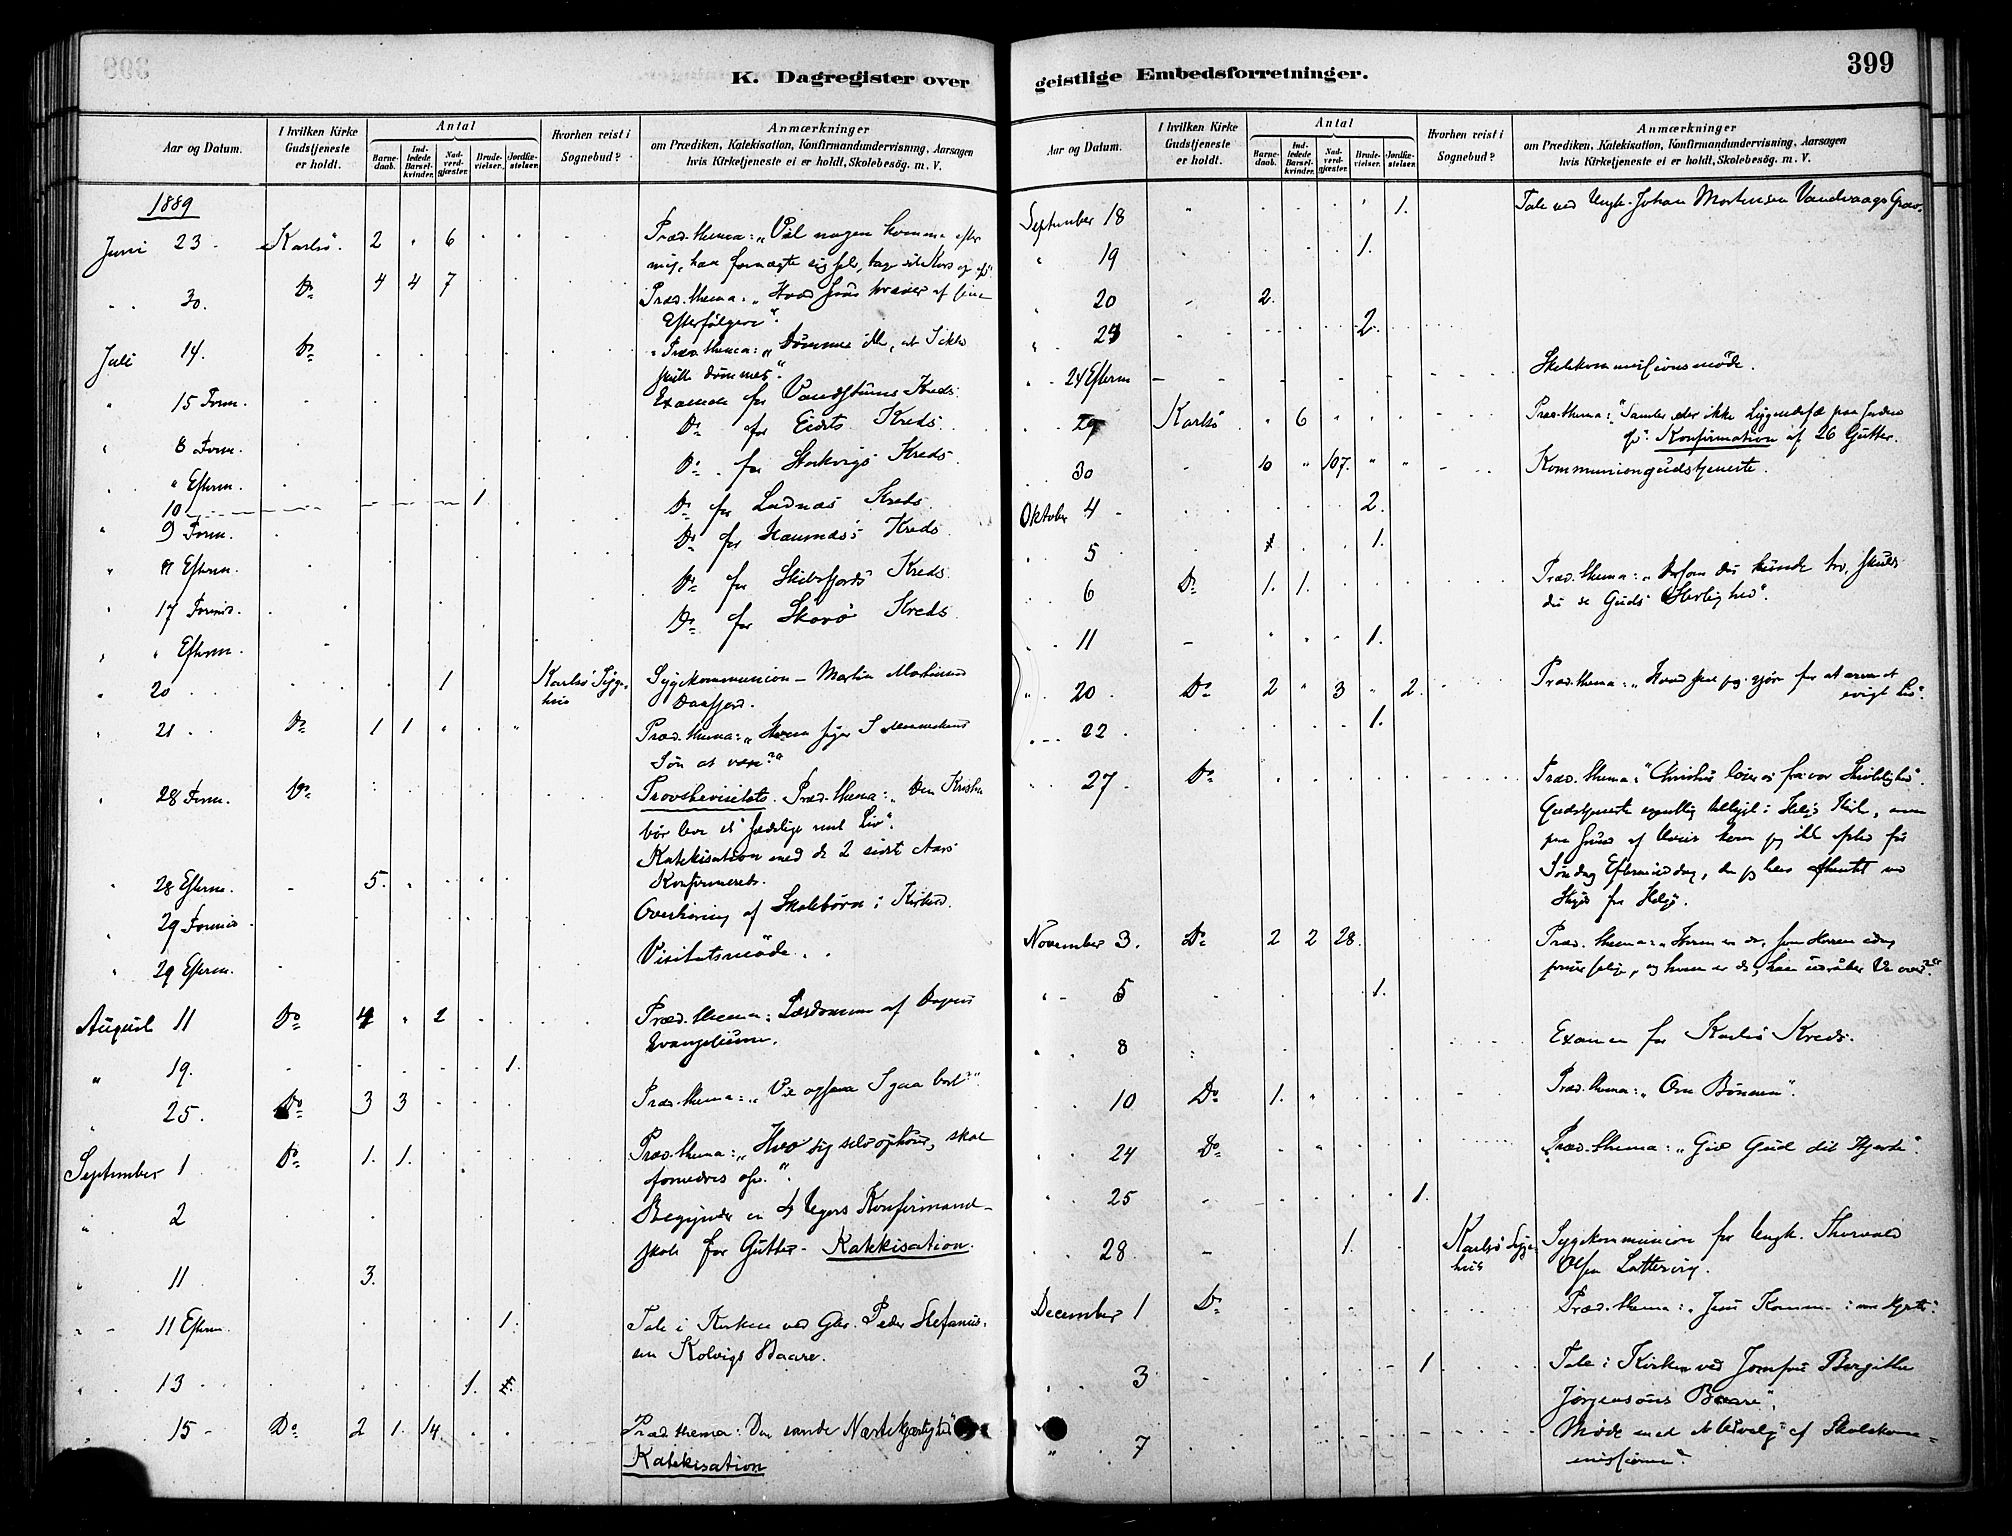 399
K. Dagregister over
geistlige Embedsforretninger.
Aar og Datum.
I hvilken Kirke
Gudstjeneste
er holdt.
Antal
Barne-
daab.
Ind-
ledede
Barsel-
kvinder.
Nad-
verd-
gjæster.
Brude-
vielser.
Jordfæ-
stelser.
Hvorhen reist i
Sognebud?
Anmærkninger
om Prædiken, Katekisation, Konfirmandundervisning, Aarsagen
hvis Kirketjeneste ei er holdt, Skolebesög. m. V.
1889
Juni 23 Karlsö. 2 " 6 Præd. thema: "Vil nogen komme efter
mig, han fornægte sig selv, tage sit Kors og
" 30. Do 4 4 7 Præd. thema: "Hvad Jesus kræver af sine
Efterfölgere".
Juli 14. Do Præd. thema: "Dömmer ikke, at I ikke
skulle dömmes".
" 15 Form. Examen for Vandstuens Kreds.
" 8 Form. Do for Eidets Kreds.
" " Efterm. Do for Storkvigs Kreds.
10 1. Do for Kreds
" 9 Form. Do for Kreds
" 9 Efterm. Do for Skibsfjords Kreds
" 17 Formid. Do for Skorö Kreds
" " Efterm.
" 20 1 Karlsö Syge-
hus Sygekommunion - Martin Martinsen
Daafjord.
" 21 Do 1 1 " " Præd. thema: "Hvem siger I Menneskens
Sön at være?"
" 28 Form. Do Provstevisitats. Præd. thema: "Den Kristne
bör leve et Liv".
Katekisation med de 2 sidste Aars
Konfirmerede.
" 28 Efterm. 5. Overhöring af Skolebörn i Kirken.
" 29 Formid.
" 29 Efterm. Visitatsmöde.
August 11 Do 4 " 2 Præd. thema: Lærdommen af Dagens
Evangelium.
" 19. 1.
" 25. Do 3 3 Præd. thema: "Vil ogsaa I gaa bort?"
September 1 Do 1. 1. Præd. thema: "Hvo sig selv ophöier, skal
fornedres osv."
" 2 Begynder en 4 Ugers Konfirmand-
skole for Gutter. Katekisation.
" 11 3.
" 11 Efterm. 1. Tale i Kirken ved Peder Stefanus-
sen Kolvigs Baare.
" 13 1.
" 15 Do 2 1. 14. Præd. thema: Den sande Næstekjærlighed
Katekisation
Aar og Datum.
I hvilken Kirke
Gudstjeneste
er holdt.
Antal
Barne-
daab.
Ind-
ledede
Barsel-
kvinder.
Nad-
verd-
gjæster.
Brude-
vielser.
Jordfæ-
stelser.
Hvorhen reist i
Sognebud?
Anmærkninger
om Prædiken, Katekisation, Konfirmandundervisning, Aarsagen
hvis Kirketjeneste ei er holdt, Skolebesög. m. V.
September 18 " 1. Tale ved Ungk. Johan Mortensen Vandvaags Grav.
" 19 1.
" 20 2.
" 2. 
" 24 Efterm Skolekommissionsmöde.
29 Karlsö " 6 Præd. thema: "Samler eder ikke Liggendefæ paa Jorden
osv". Konfirmation af 26 Gutter.
30 10 " 107. " " Kommuniongudstjeneste.
Oktober 4 2.
5 1.
6 Do 1. 1. Præd. thema: "Dersom du kunde tro, skulde
du se Guds Herlighed".
11 1.
" 20 Do 2 " 3 " 2. Præd. thema: "Hvad skal jeg gjöre for at arve et
evigt Liv".
22 1.
27 Do Præd. thema: "Christus löser os fra vor Skröbelighed".
Gudstjeneste egentlig tillyst i Helgö Kirke, men
paa Grund af Veir kom jeg ikke afsted för
Söndag Eftermiddag, da jeg blev afhentet med
Skyds fra Helgö.
November 3. Do 2 2 28. Præd. thema: "Hvem er de, som Herren idag
priser salige, og hvem er de, han udraaber Ve over?"
" 5 1.
" 8 Examen for Karlsö Kreds.
10 Do 1. " Præd. thema: "Om Bönnen".
24 Do Præd. thema: "Giv Gud dit Hjerte".
" 25 1.
28 1. Karlsö Syge-
hus Sygekommunion for Ungk. Thorvald
Olsen
December 1 Do Præd. thema: "Jesu Komme i vore Hjerter.
" 3 1 Tale i Kirken ved Jomfru Bergithe
Jörgensens Baare".
" 7 Möde med et Udvalg af Skolekom-
missionen.